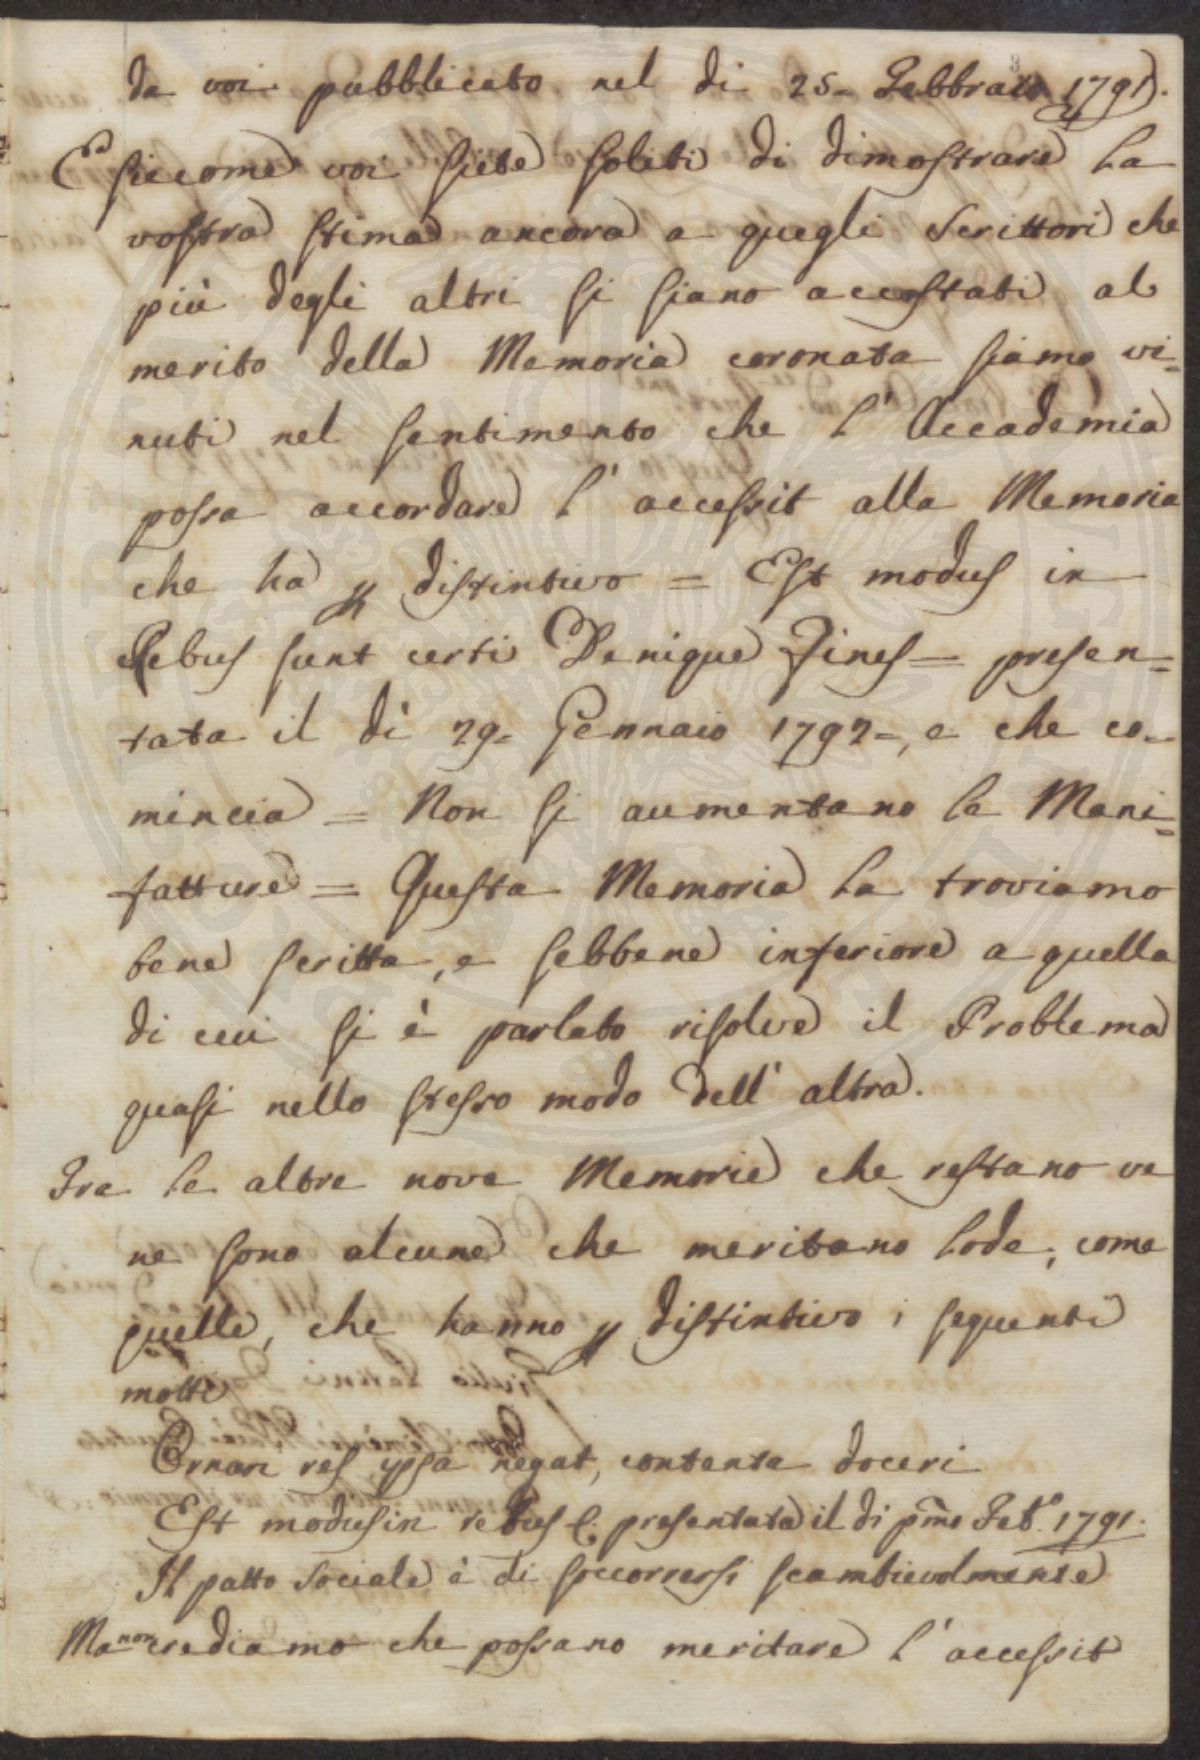 da voi pubblicato nel di 25. Febbraio 1791.
E siccome voi siete soliti di dimostrare la
vostra stima ancora a quegli Scrittori che
più degli altri si siano accostati al
merito della Memoria coronata siamo vi-
nuti nel sentimento che l' Accademia
possa accordare l' accessit alla Memoria
che ha p distintivo = Est modus in
Rebus sunt certi Denique Fines = presen=
tata il di 29. Gennaio 1792, e che co-
mincia = Non si aumentano le Mani=
fatture = Questa Memoria la troviamo
bene scritta, e sebbene inferiore a quella
di cui si è parlato risolve il Problema
quasi nello stesso modo dell' altra.
Tra le altre nove Memorie che restano ve
ne sono alcune che meritano lode, come
quelle, che hanno p distintivo i sequenti
motti
Ornari res ipsa negat, contenta doceri
Est modus in rebus &. presentata il di pmo Feb.o 1791.
Il patto sociale è di soccorrersi scambievolmente
Ma non crediamo che possano meritare l' accessit